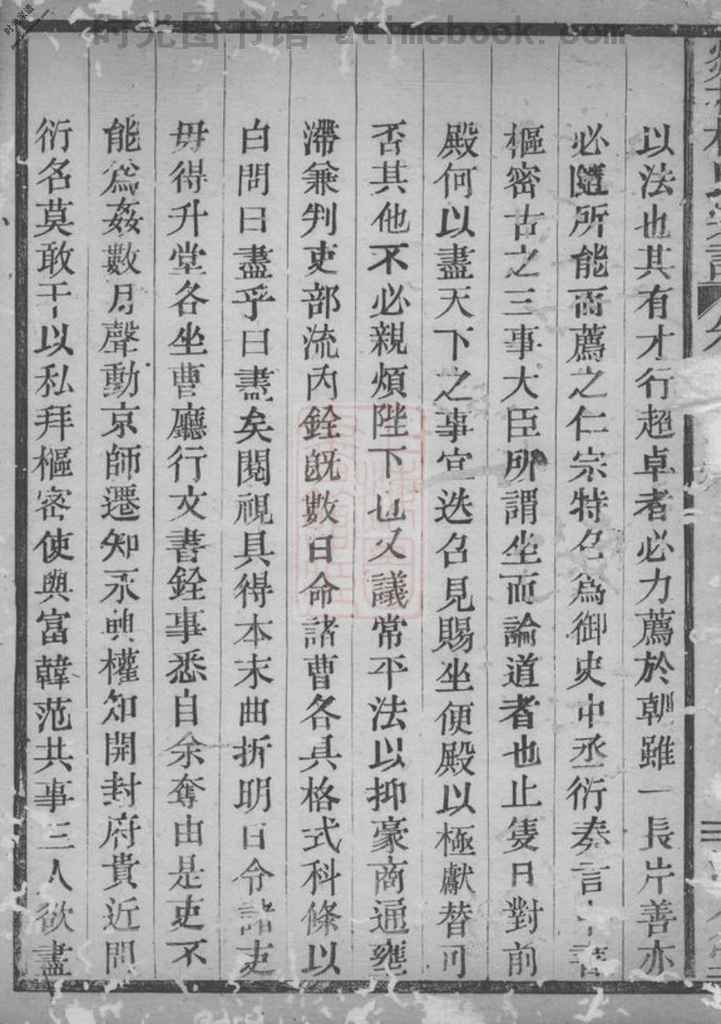 时光图书馆 atimebook.com
以法也其有才行超卓者必力薦於朝雖一長片善亦
必隨所能而薦之仁宗特召為御史中丞衍奏言中書
樞密古之三事大臣所謂坐而論道者也止隻日對前
殿何以盡天下之事宜迭召見賜坐便殿以極獻替可
否其他不必親煩陛下也又議常平法以抑豪商通壅
滯兼判吏部流內銓既數日命諸曹各具格式科條以
白問曰盡乎曰盡矣閱視具得本末曲折明日令諸吏
毋得升堂各坐曹廳行文書銓事悉自余奪由是吏不
能爲姦數月聲動京師遷知永興權知開封府貴近聞
衍名莫敢干以私拜樞密使與富韓范共事三人欲盡